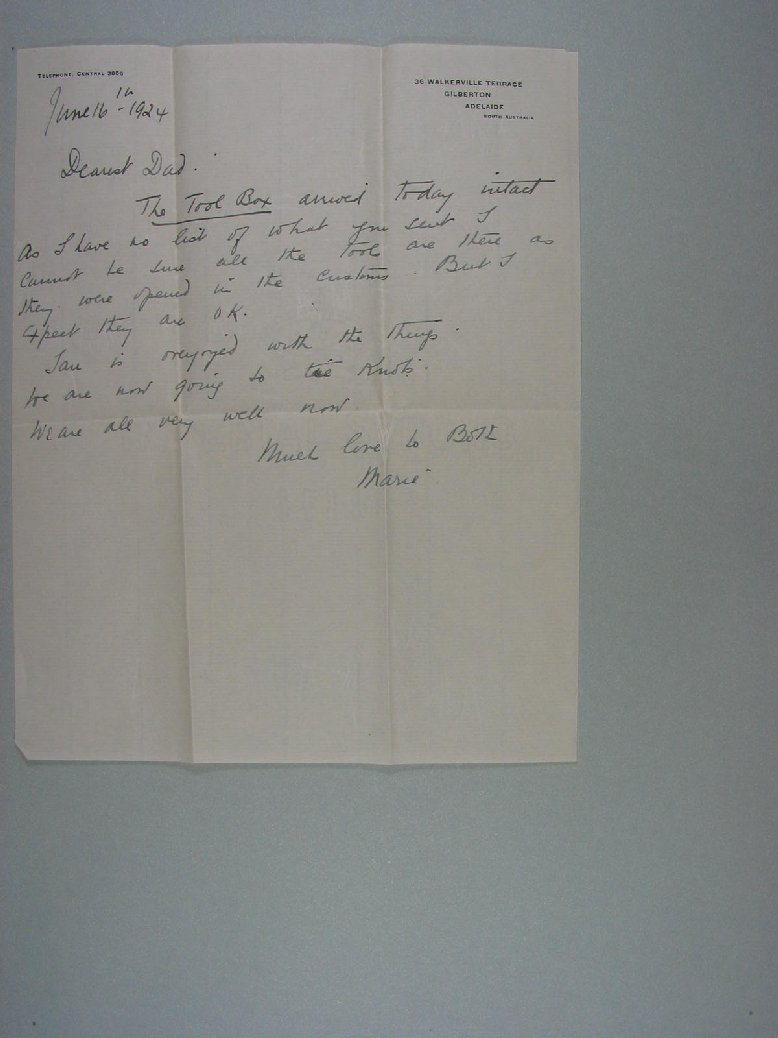 TELEPHONE, CENTRAL
36 WALKERVILLE TERRACE
GILBERTON
ADELAIDE
SOUTH AUSTRALIA
June 16th - 1924
Dearest Dad.
The Tool Box arrived today intact
As I have no list of what you sent I
Cannot be sure all the Tools are there as
they were opened in the Customs. But I
expect they are OK.
Ian is overjoyed with the things.
We are now going to tie Knots.
We are all very well now.
Much love to Both
Marie